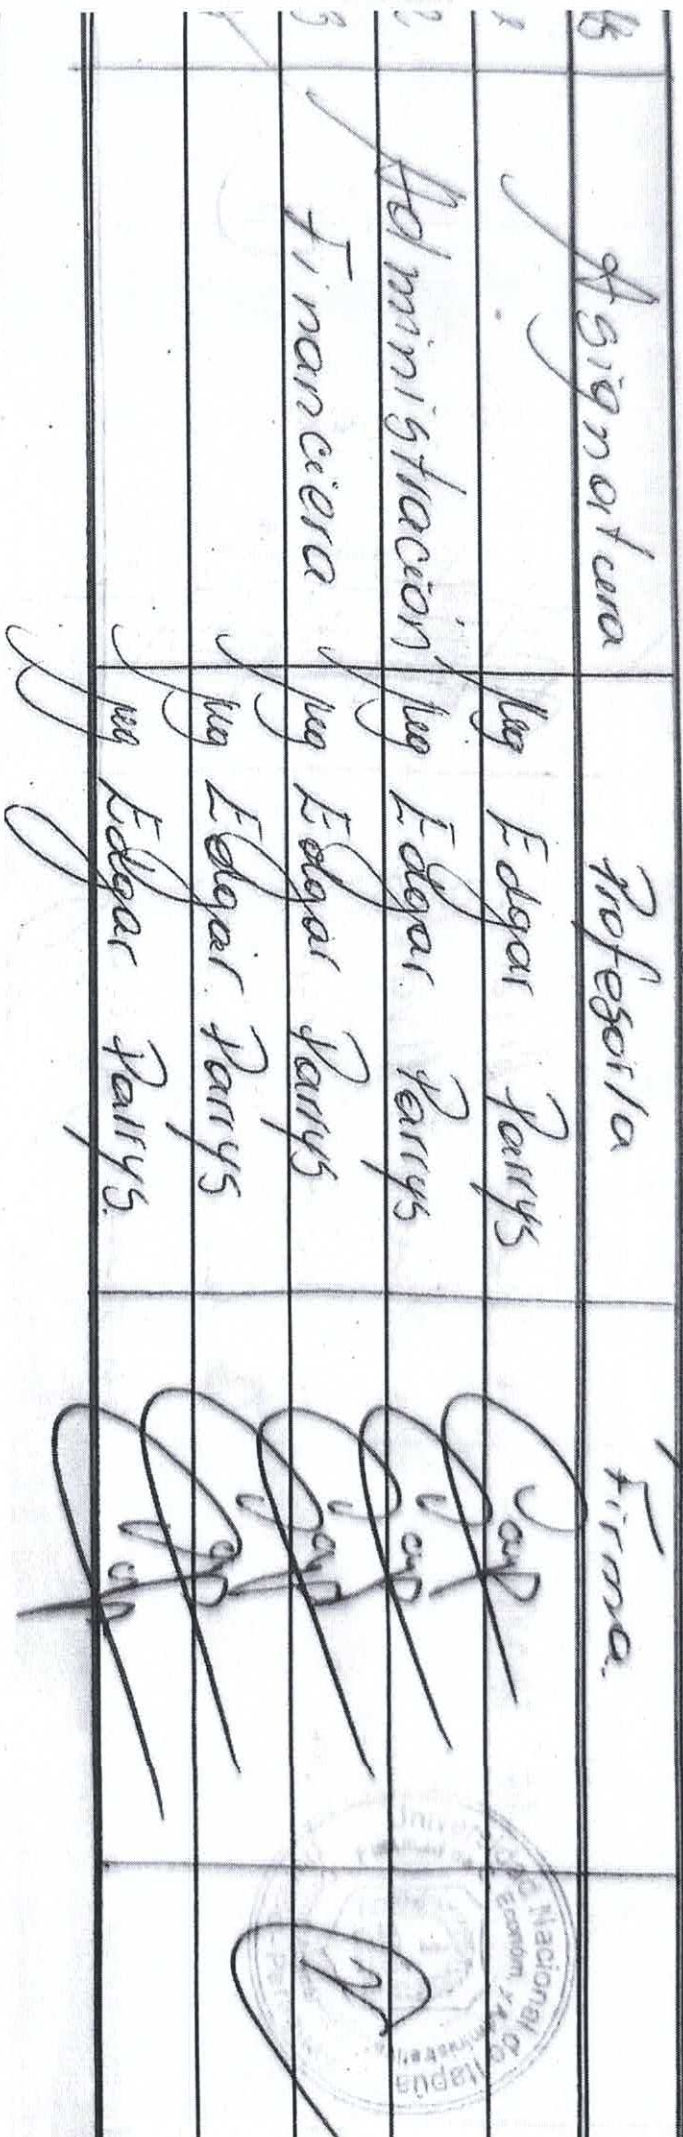 Asignatura Profesor/a Firma
Mg Edgar Parrys
Administración Mg Edgar Parrys
Financiera Mg Edgar Parrys
Mg Edgar Parrys
Mg Edgar Parrys
Universidad Nacional de Itapúa